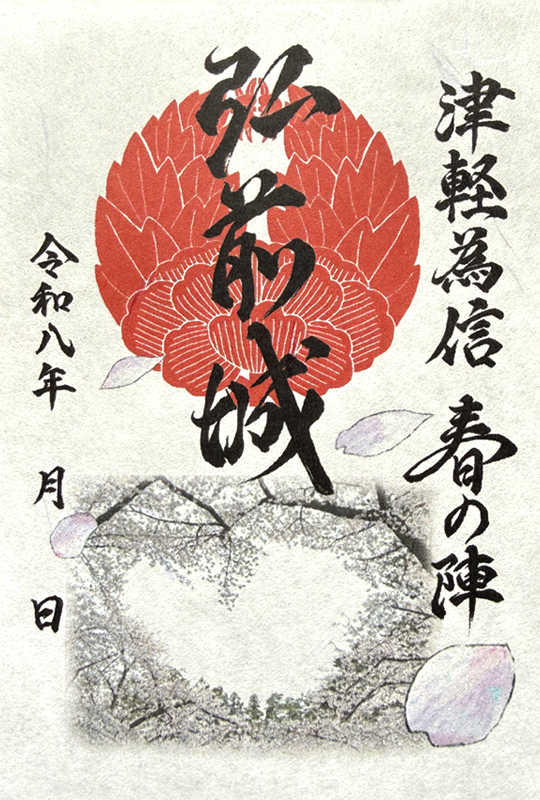 津軽為信 春の陣
弘前城
令和八年 月 日